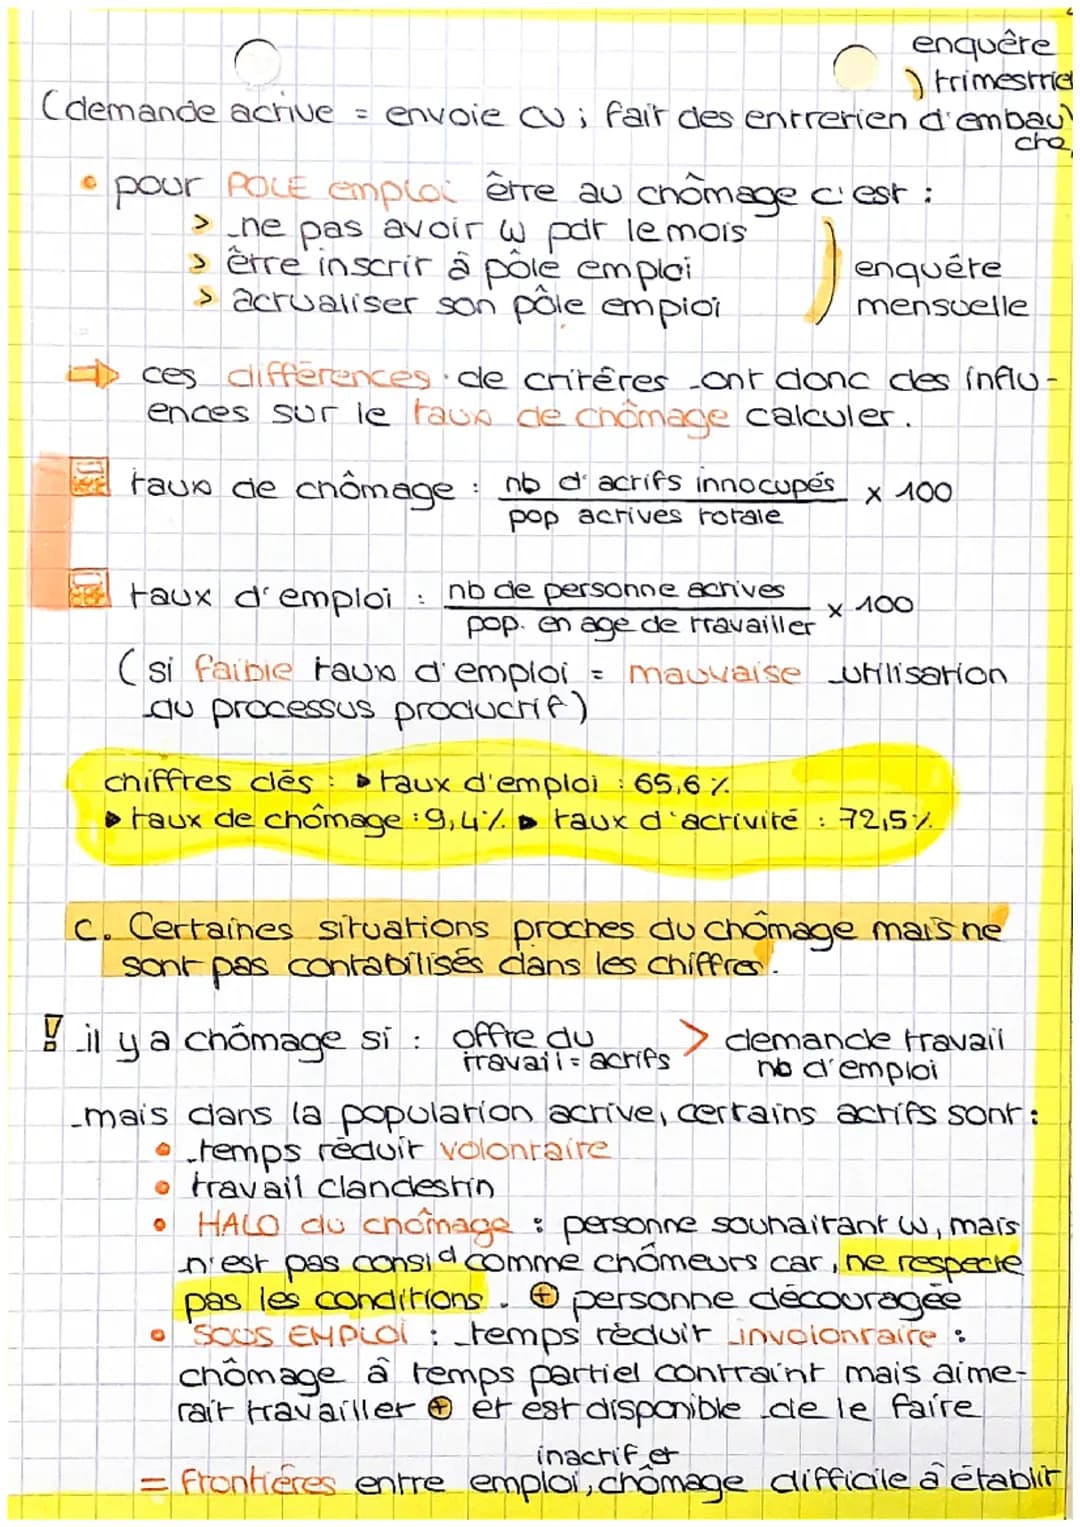 enquête
) trimestriel
(demande active = envoie CV ; fait des entretien d'embau
che,
• pour POLE emploi être au chômage c'est :
> ne pas avoir w pdt le mois
> être inscrit à pôle emploi
> actualiser son pôle emploi
) enquête
mensuelle
⇒ ces différences de critères ont donc des influ-
ences sur le taux de chômage calculer.
taux de chômage : nb d'actifs innocupés x 100
pop actives totale
taux d'emploi : nb de personne actives x 100
pop. en age de travailler
(si faible taux d'emploi = mauvaise utilisation
du processus productif)
chiffres clés : ▶ taux d'emploi : 65,6 %
▶ taux de chômage : 9,4 % ▶ taux d'activité : 72,5 %
c. Certaines situations proches du chômage mais ne
sont pas contabilisés dans les chiffres.
! il y a chômage si : offre du > demande travail
travail = actifs nb d'emploi
mais dans la population active, certains actifs sont :
• temps réduit volontaire
• travail clandestin
• HALO du chômage : personne souhaitant w, mais
n'est pas consid comme chômeurs car, ne respecte
pas les conditions. ⊕ personne découragée
• SOUS EMPLOI : temps réduit involontaire :
chômage à temps partiel contraint mais aime-
rait travailler ⊕ et est disponible de le faire
inactif et
= Frontières entre emploi, chômage difficile à établir